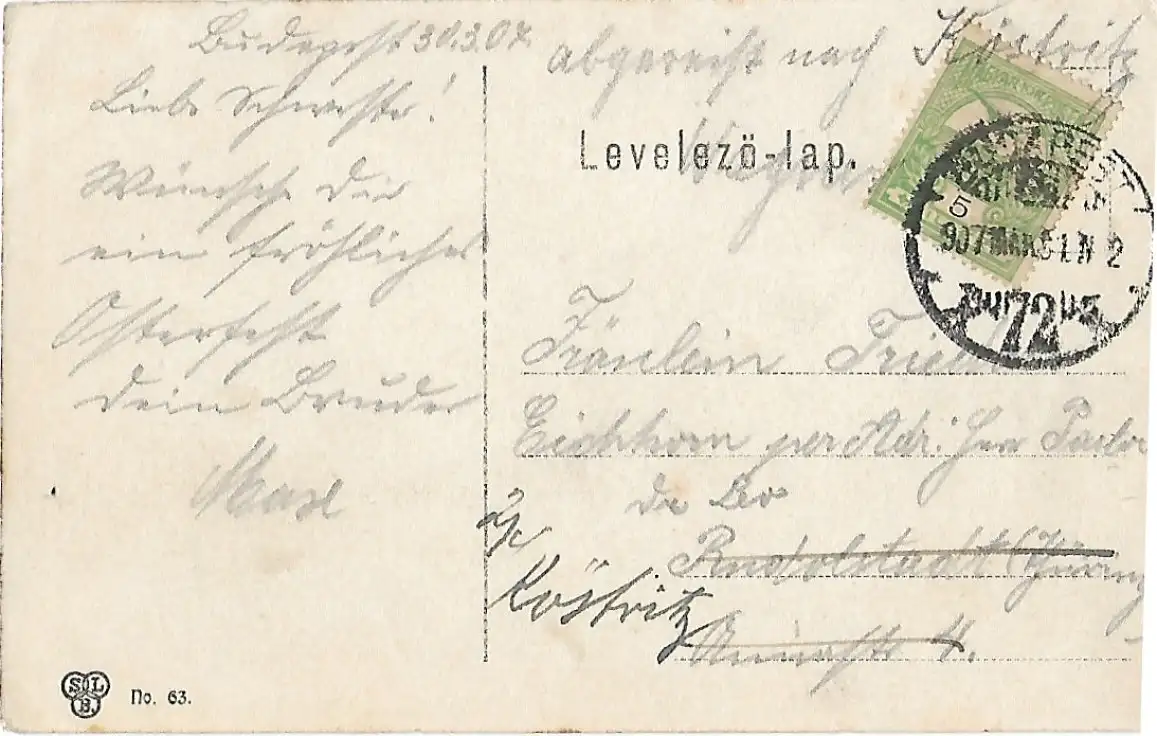 Budapest 30.3.07.
Liebe Schwester!
Wünsche Dir
ein fröhliches
Osterfest
dein Bruder
Max
abgereist nach Köstritz
Levelező-lap.
BUDAPEST
5
907 MÁR 31 N 2
72
Fräulein
Eichhorn per Adr: Herr Pastor
de Leo
z/c
Köstritz
Rudolstadt (Thüring
4.
SLB.
No. 63.